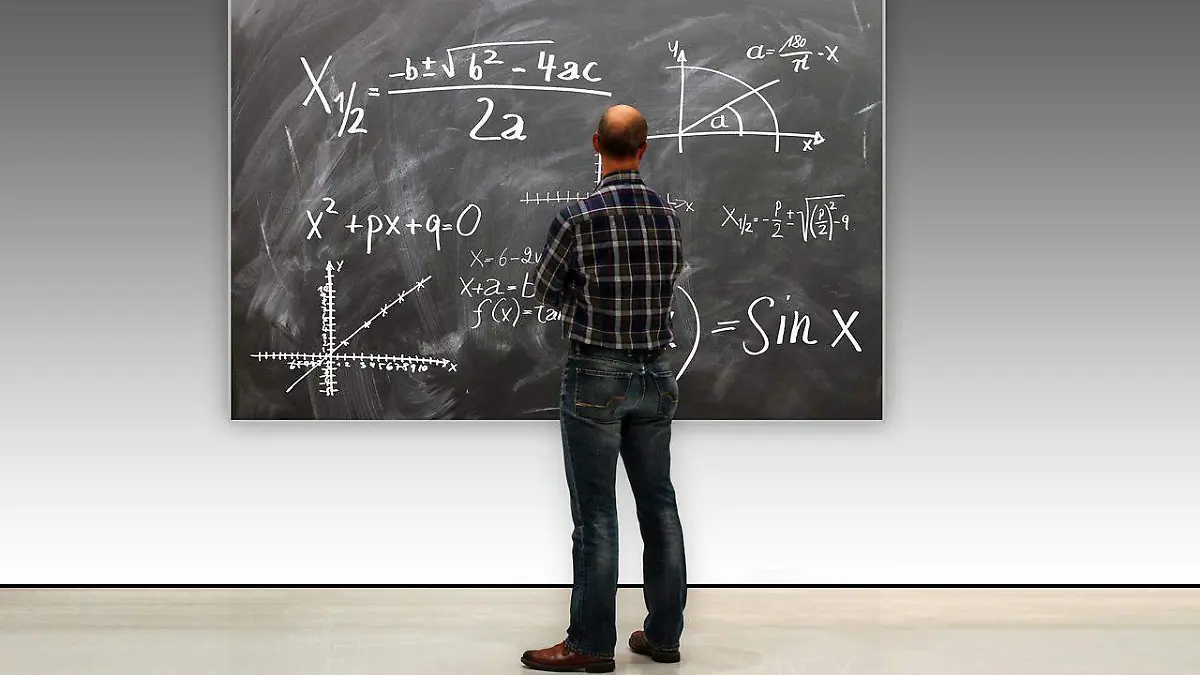 X1/2 = -b±√b² - 4ac / 2a
y
a = 180/π · x
a
x
x
x² + px + q = 0
X1/2 = -p/2 ± √(p/2)² - q
x = 6 - 2
x + a = b
f(x) =
y
x
) = Sin x